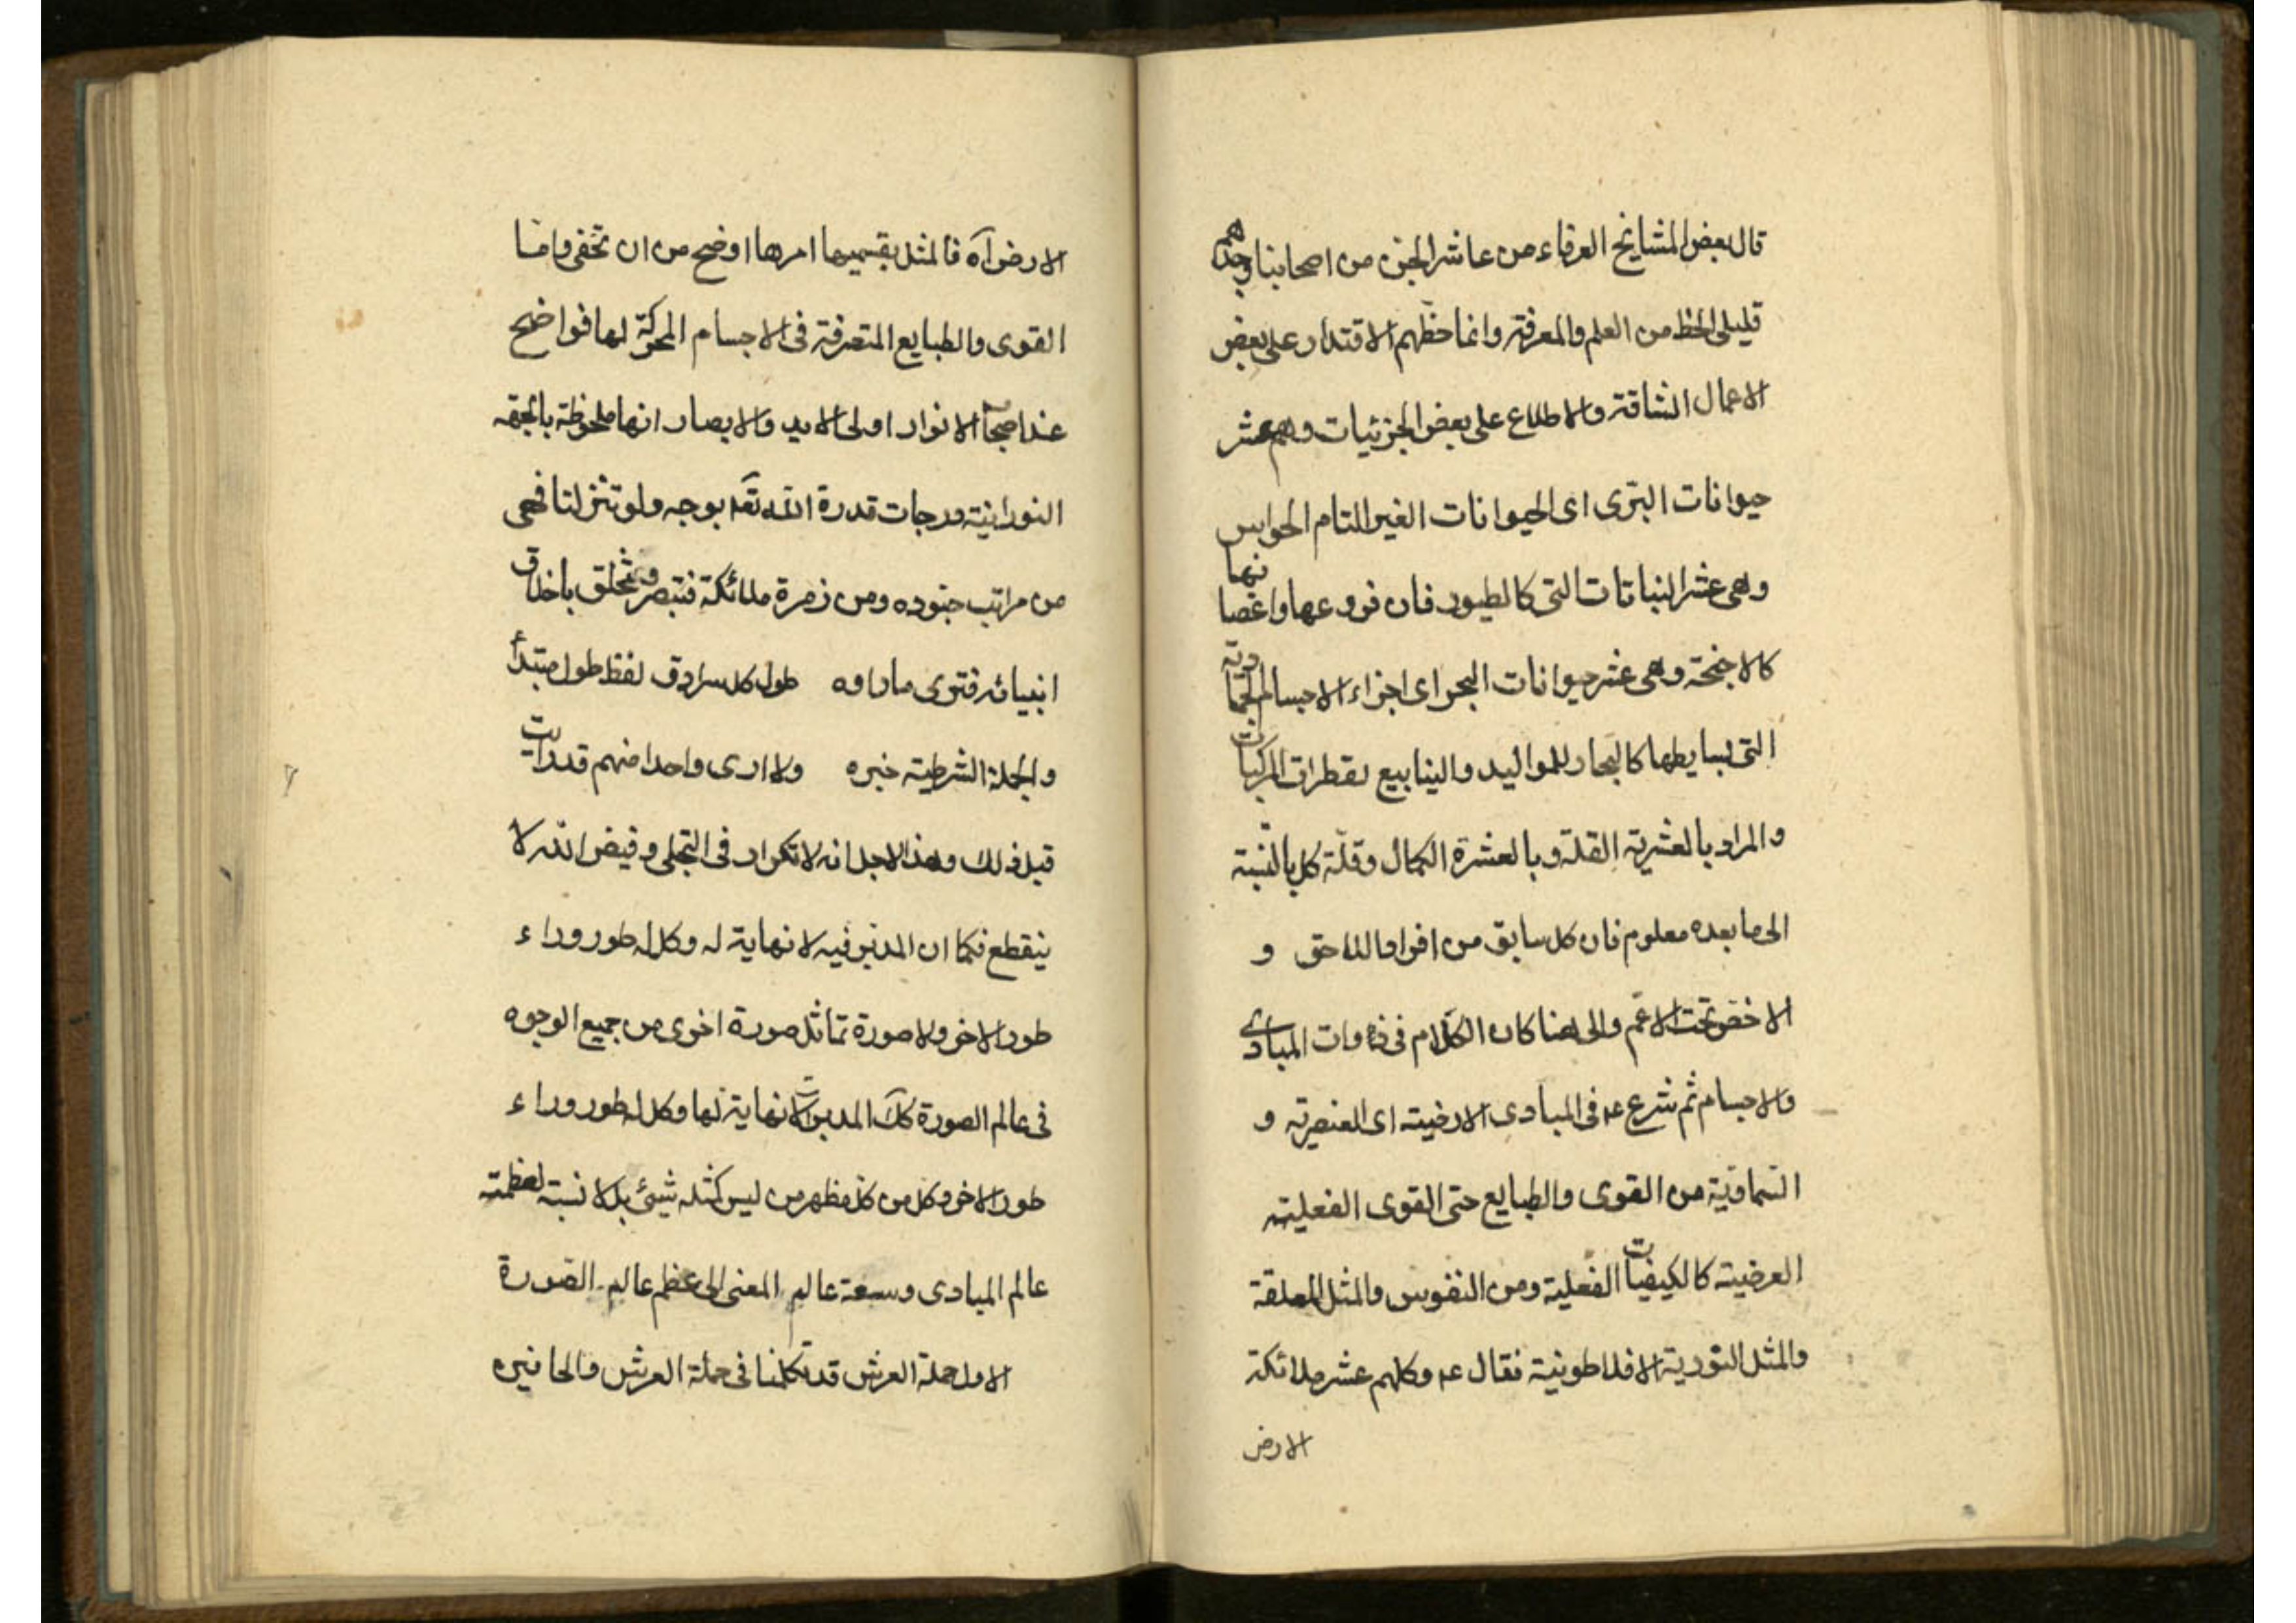 قال بعض المشايخ العرفاء من عاشر الجن من اصحابنا وجدهم
قليلى الحظ من العلم والمعرفة وانما حظهم الاقتدار على بعض
الاعمال الشاقة والاطلاع على بعض الجزئيات وهم عشر
حيوانات البرى اى الحيوانات الغير التام الحواس
وهى عشر النباتات التى كالطيور فان فروعها واغصانها
كالاجنحة وهى عشر حيوانات البحر اى اجزاء الاجسام الجمادية
التى بسايطها كالبحار للمواليد والينابيع لقطرات المركبات
والمراد بالعشرية القلة وبالعشرة الكمال وقلة كل بالنسبة
الى ما بعده معلوم فان كل سابق من افراد اللاحق و
الاخص تحت الاعم والى هنا كان الكلام فى ذوات المبادى
والاجسام ثم شرع عم فى المبادى الارضية اى العنصرية و
السماوية من القوى والطبايع حتى القوى الفعلية
العرضية كالكيفيات الفعلية ومن النفوس والمثل المعلقة
والمثل النورية الافلاطونية فقال عم وكلهم عشر ملائكة
الارض
الارض آه فالمثل بقسميها امرها اوضح من ان تخفى واما
القوى والطبايع المتصرفة فى الاجسام المحركة لها فواضح
عند اصحاب الانوار اولى الايد والابصار انها ملحوظة بالجهة
النورانية درجات قدرة الله تعم بوجه ولو تنزلنا فهى
من مراتب جنوده ومن زمرة ملائكة فتبصر وتخلق باخلاق
انبيائه فترى ماراوه طول كل سرادق لفظ طول مبتدأ
والجملة الشرطية خبره ولا ارى واحدا منهم قد رايت
قبل ذلك وهذا لاجل انه لا تكرار فى التجلى وفيض الله لا
ينقطع فكما ان المدبر فيه لا نهاية له وكل له طور وراء
طور الاخر ولا صورة تماثل صورة اخرى من جميع الوجوه
فى عالم الصورة كك المدبرات لا نهاية لها وكل له طور وراء
طور الاخر وكل من كل مظهر من ليس كمثله شيئ بل لا نسبة لعظمته
عالم المبادى وسعة عالم المعنى الى عظم عالم الصورة
الاول حملة العرش قد تكلمنا فى حملة العرش والحافين